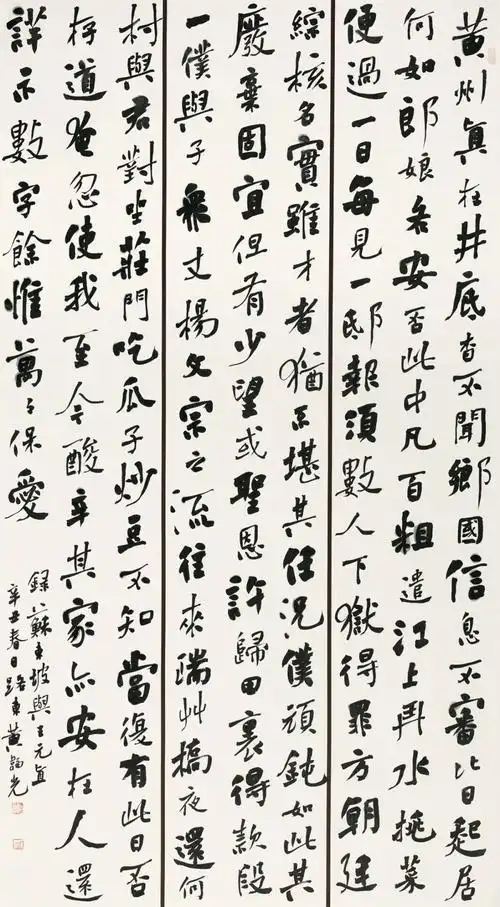 黃州眞在井底杳不聞鄉國信息不審比日起居
何如郎娘各安否此中凡百粗遣江上弄水挑菜
便過一日每見一邸報須數人下獄得罪方朝廷
綜核名實雖才者猶不堪其任況僕頑鈍如此其
廢棄固宜但有少望或聖恩許歸田裏得款段
一僕與子衆丈楊文宗之流往來瑞艸橋夜還何
村與君對坐莊門吃瓜子炒豆不知當復有此日否
存道奄忽使我至今酸辛其家亦安在人還
詳示數字餘惟萬々保愛
錄蘇東坡與王元直
辛丑春日路東黃光